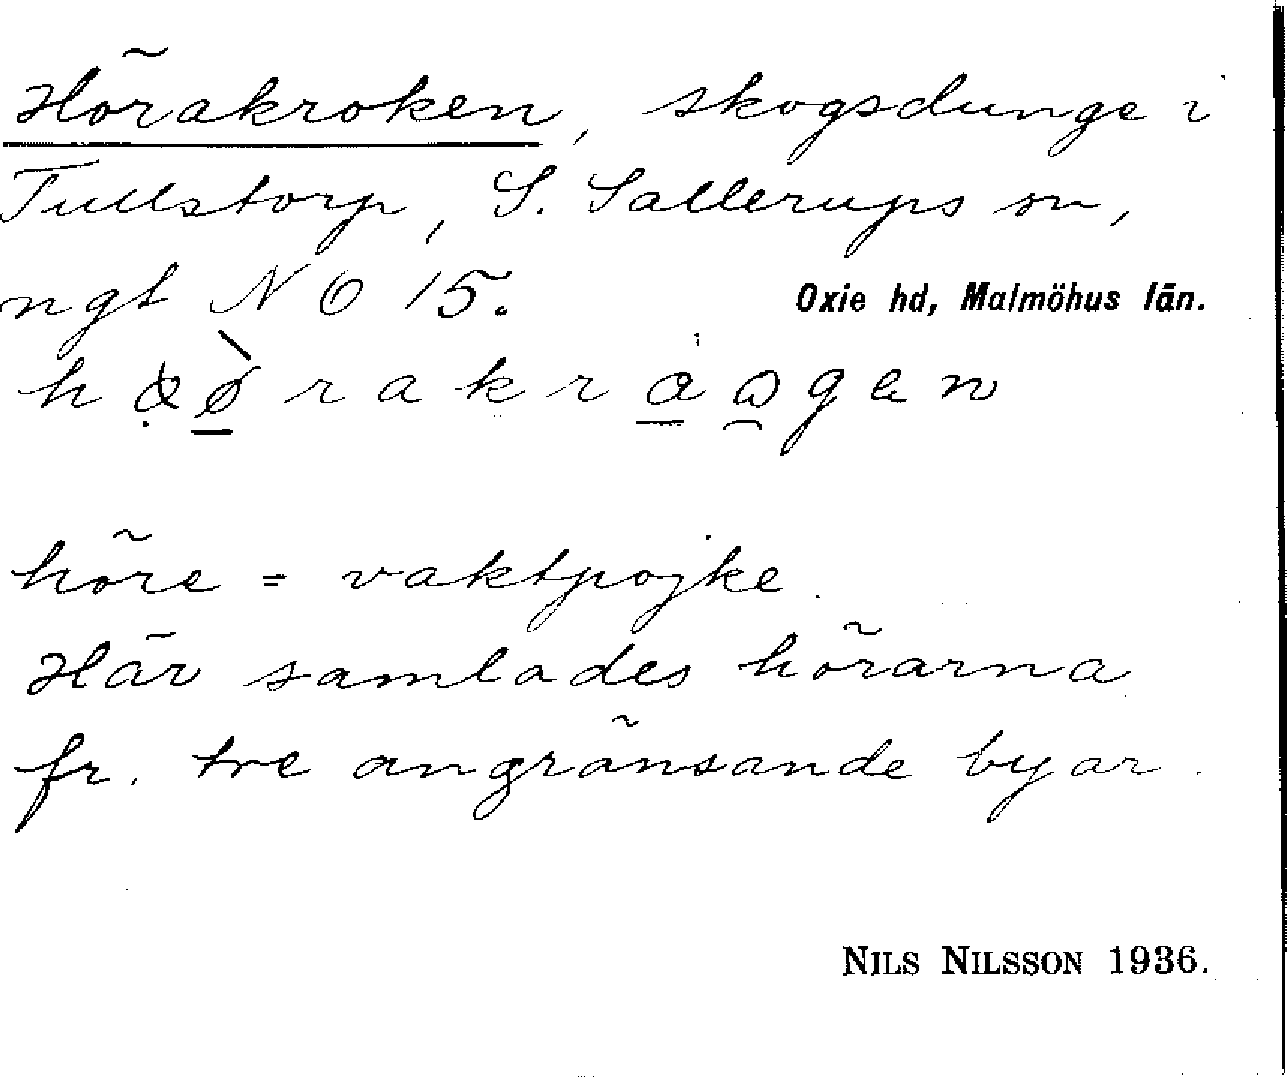 Hörakroken, skogsdunge i
Tullstorp, S. Sallerups sn,
ngt NO 15.
Oxie hd, Malmöhus län.
höre = vaktpojke.
Här samlades hörarna
fr. tre angränsande byar.
NILS NILSSON 1936.